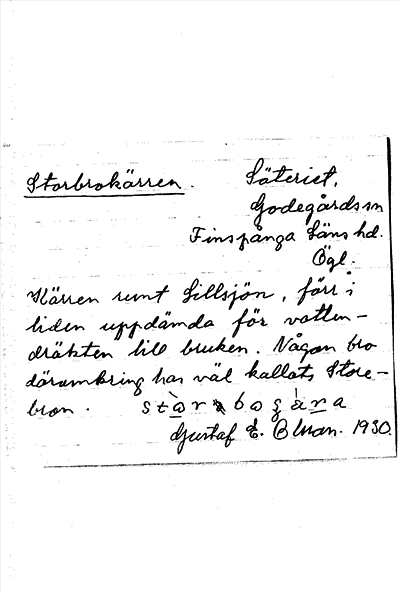 Storbrokärren.
Säteriet,
Godegårds sn
Finspånga Läns hd.
Ögl.
Kärren runt Lillsjön, förr i
tiden uppdämda för vatten-
dräkten till bruken. Någon bro
däromkring har väl kallats Store-
bron.
Gustaf E. Blman. 1930.